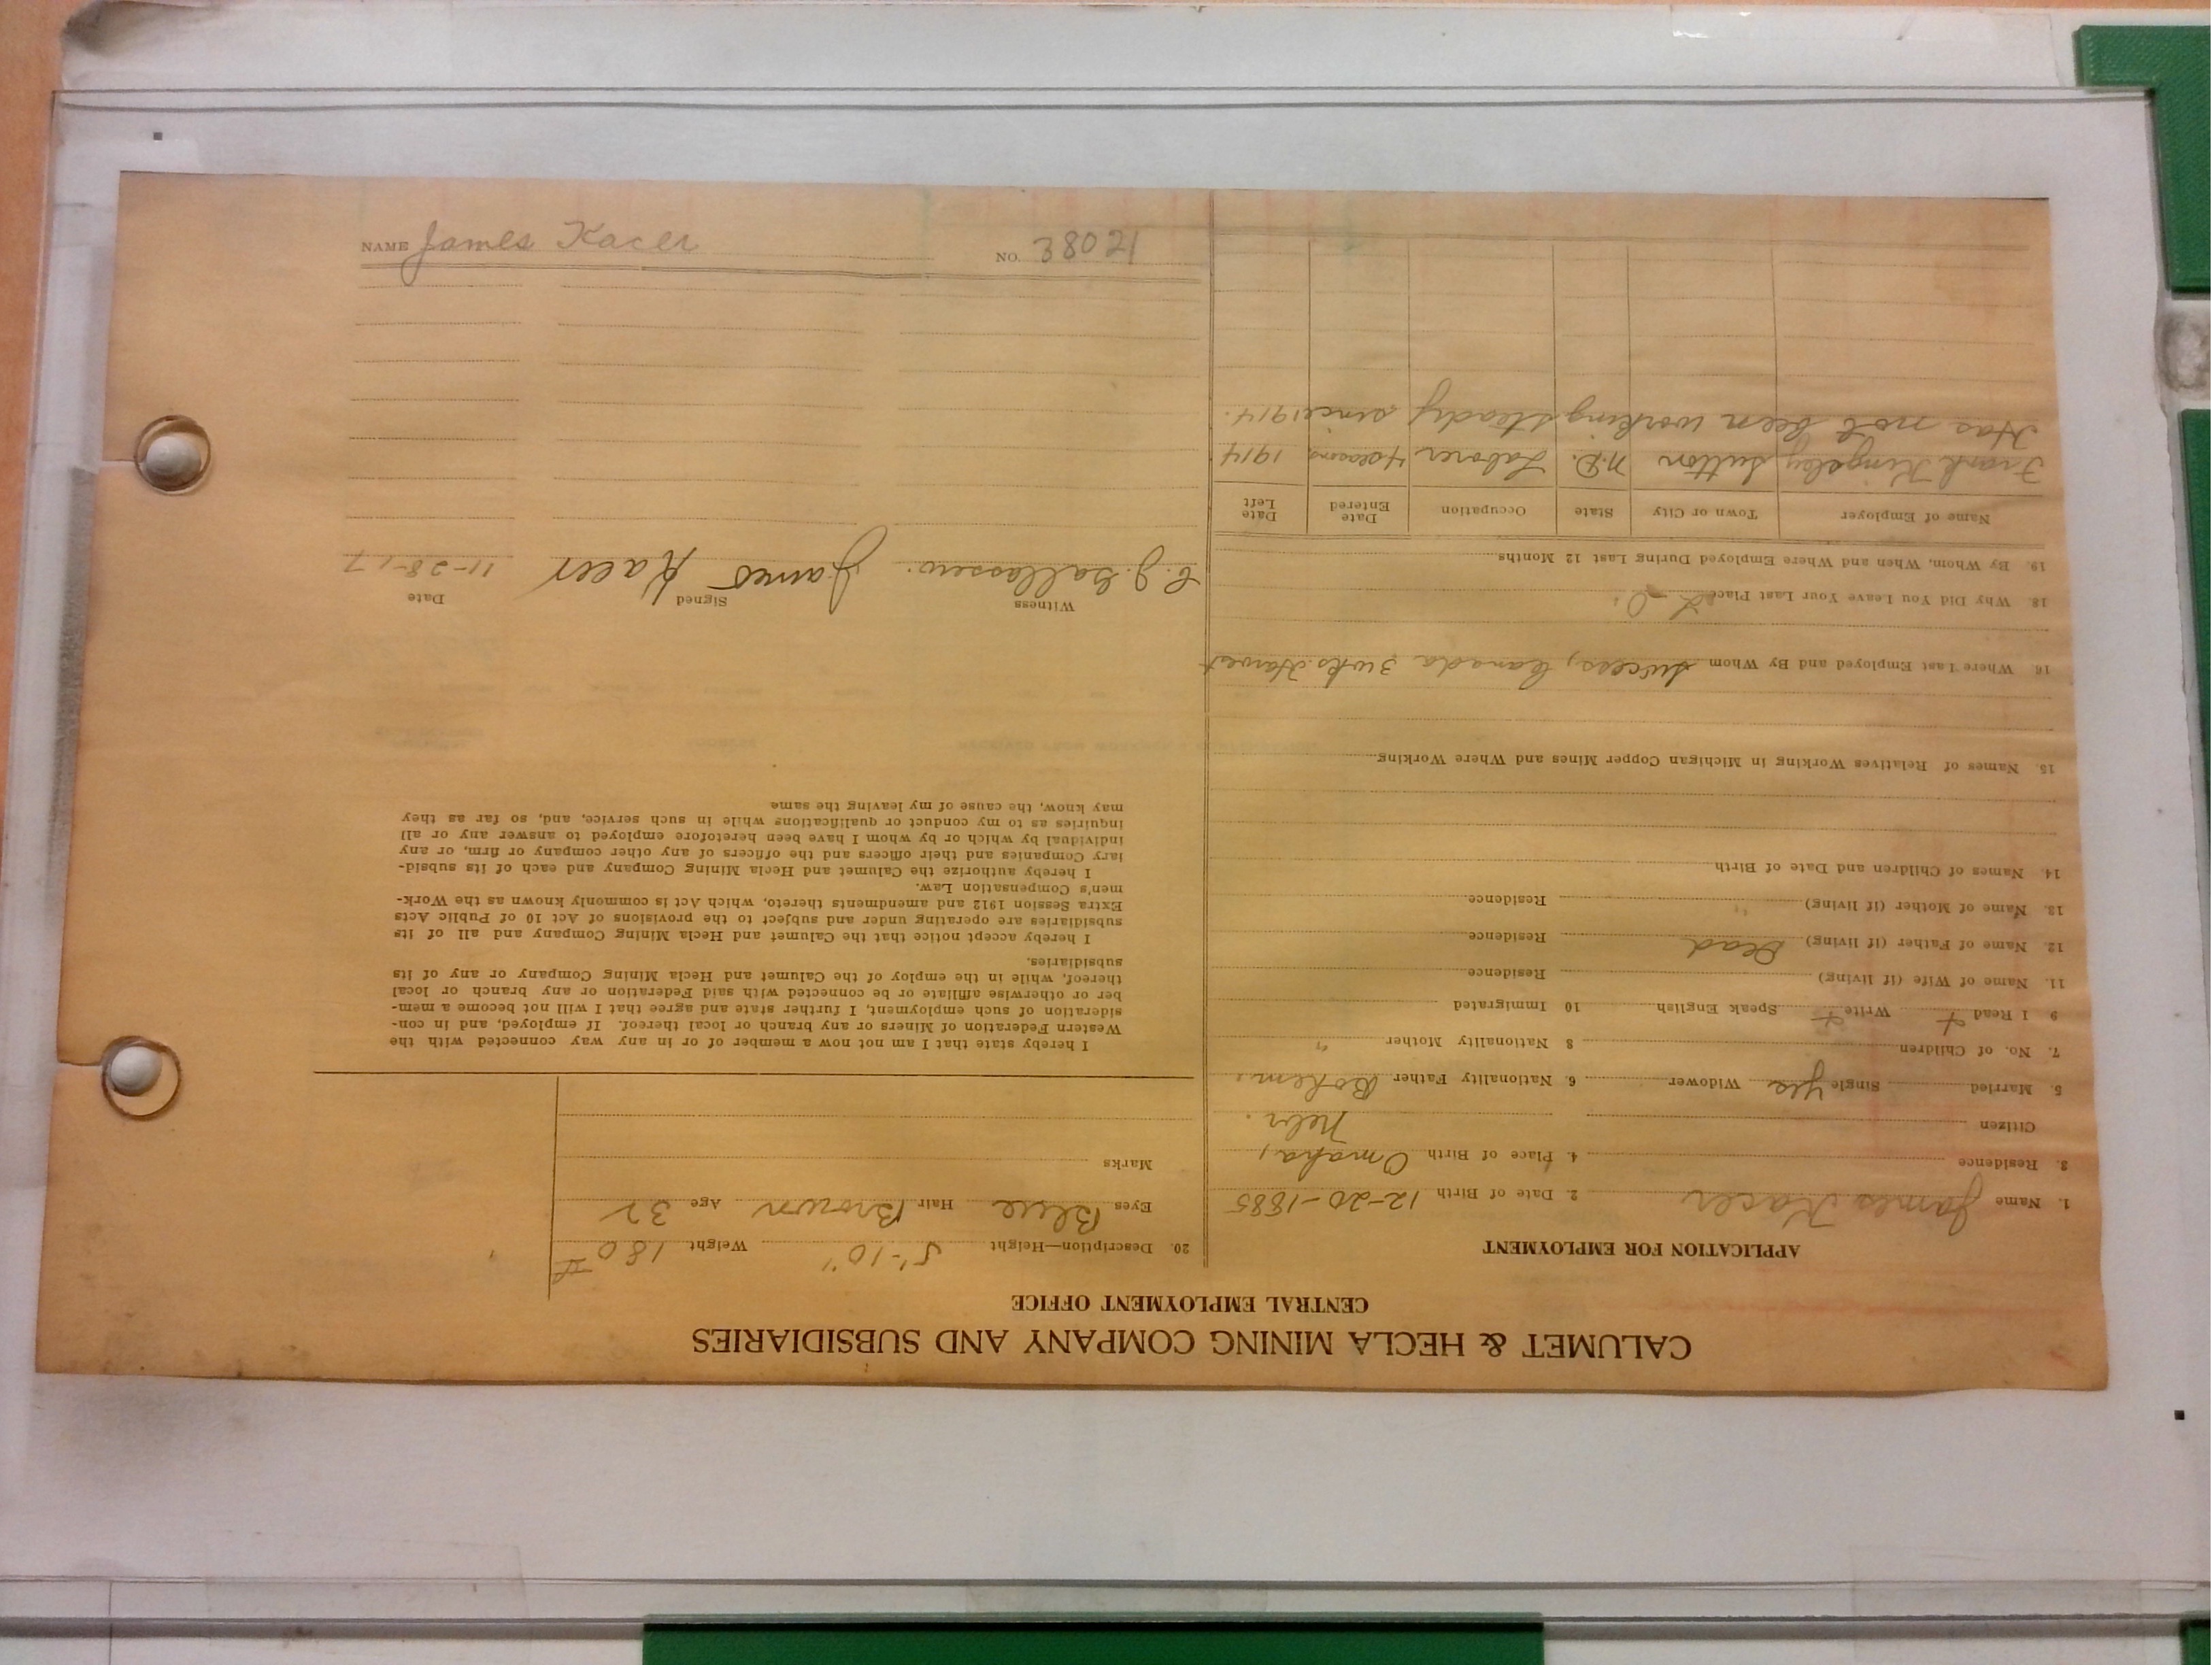 CALUMET & HECLA MINING COMPANY AND SUBSIDIARIES
CENTRAL EMPLOYMENT OFFICE
APPLICATION FOR EMPLOYMENT
1. Name James Kacer 2. Date of Birth 12-20-1885
3. Residence 4. Place of Birth Omaha,
Citizen Nebr.
5. Married Single Yes Widower 6. Nationality Father Bohem.
7. No. of Children 8 Nationality Mother "
9 I Read + Write + Speak English 10 Immigrated
11. Name of Wife (if living) Residence
12. Name of Father (if living) Dead Residence
13. Name of Mother (if living) " Residence
14. Names of Children and Date of Birth
15. Names of Relatives Working in Michigan Copper Mines and Where Working
16. Where Last Employed and By Whom Success, Canada 3 wks. Harvest
18. Why Did You Leave Your Last Place
19. By Whom, When and Where Employed During Last 12 Months
Name of Employer Town or City State Occupation Date Entered Date Left
Frank Kingsley Sutton N.D. Laborer 4 seasons 1914
Has not been working steady since 1914.
20. Description—Height 5'-10" Weight 180 #
Eyes Blue Hair Brown Age 32
Marks
I hereby state that I am not now a member of or in any way connected with the
Western Federation of Miners or any branch or local thereof. If employed, and in con-
sideration of such employment, I further state and agree that I will not become a mem-
ber or otherwise affiliate or be connected with said Federation or any branch or local
thereof, while in the employ of the Calumet and Hecla Mining Company or any of its
subsidiaries.
I hereby accept notice that the Calumet and Hecla Mining Company and all of its
subsidiaries are operating under and subject to the provisions of Act 10 of Public Acts
Extra Session 1912 and amendments thereto, which Act is commonly known as the Work-
men's Compensation Law.
I hereby authorize the Calumet and Hecla Mining Company and each of its subsid-
iary Companies and their officers and the officers of any other company or firm, or any
individual by which or by whom I have been heretofore employed to answer any or all
inquiries as to my conduct or qualifications while in such service, and, so far as they
may know, the cause of my leaving the same
Witness Signed Date
James Kacer 11-28-17
NAME James Kacer NO. 38021